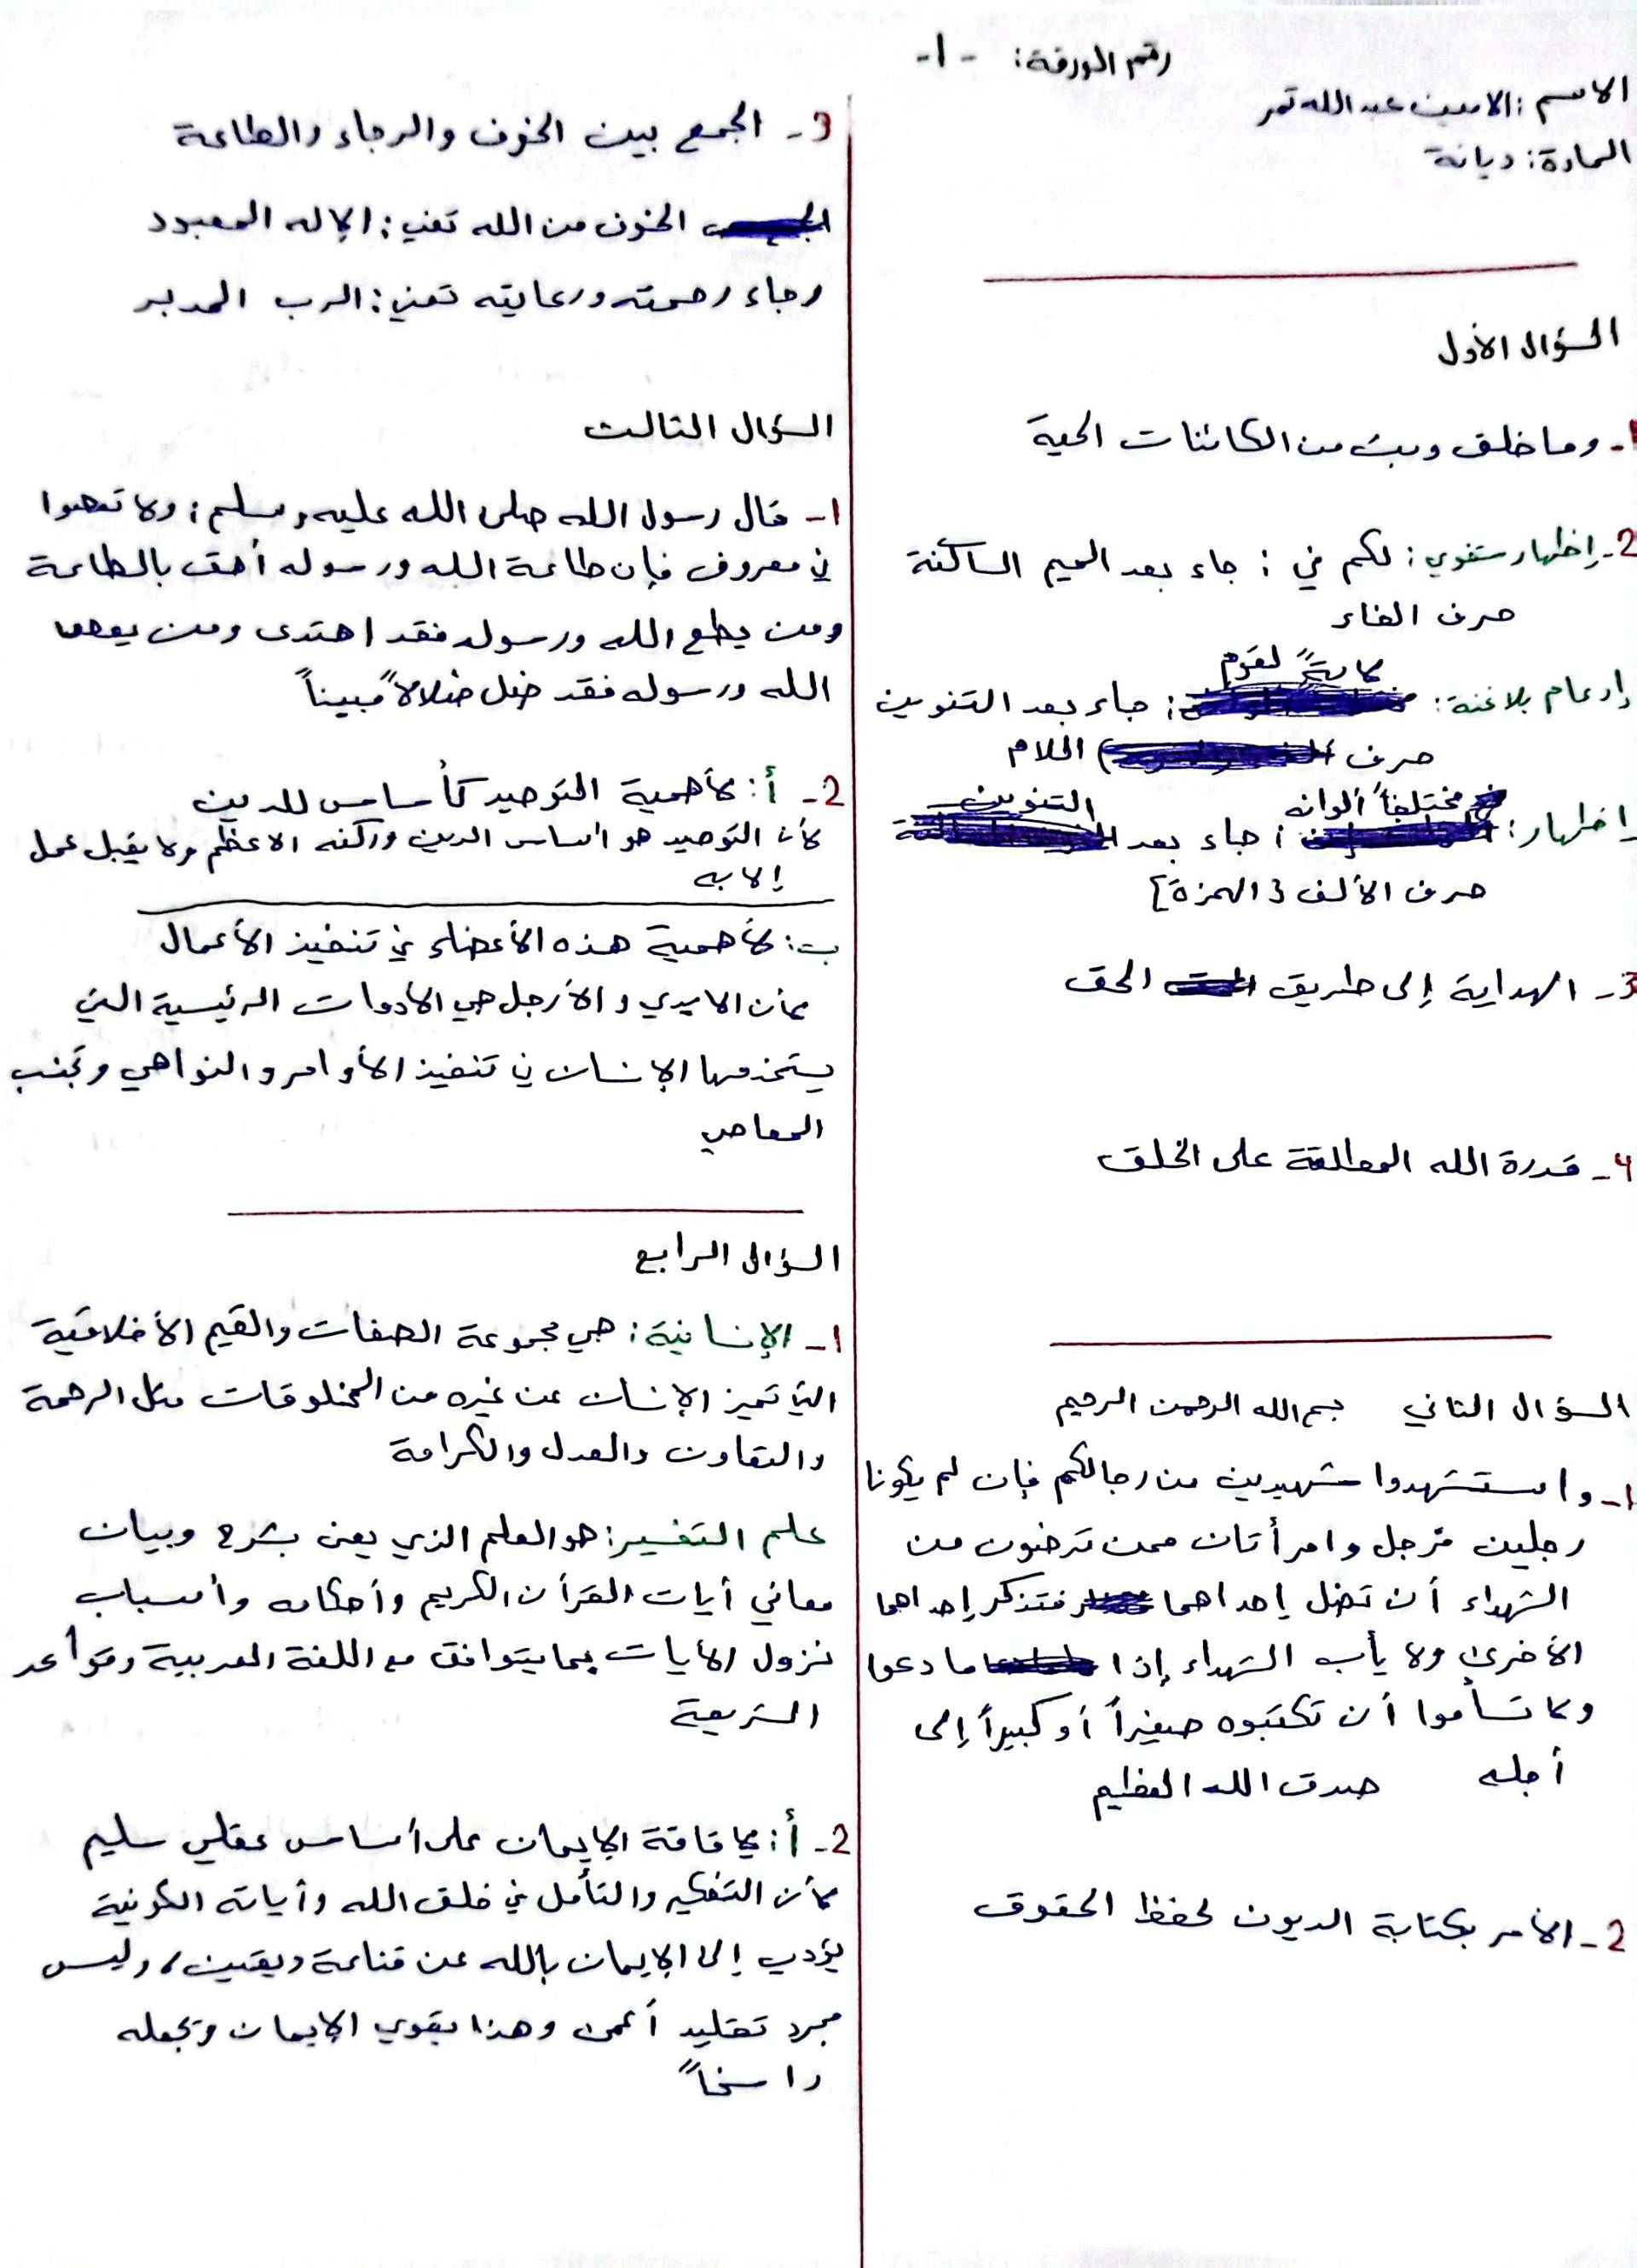 رقم الورقة: -1-
الاسم: الامين عبد الله تمر
المادة: ديانة
السؤال الأول
1- وما خلق وبث من الكائنات الحية
2- إظهار شفوي: لكم في: جاء بعد الميم الساكنة
حرف الفاء
إدغام بلا غنة: لآيةً لقوم: جاء بعد التنوين
حرف اللام
إظهار: مختلفاً ألوانه: جاء بعد التنوين
حرف الألف [الهمزة]
3- الهداية إلى طريق الحق
4- قدرة الله المطلقة على الخلق
السؤال الثاني بسم الله الرحمن الرحيم
1- واستشهدوا شهيدين من رجالكم فإن لم يكونا
رجلين فرجل وامرأتان ممن ترضون من
الشهداء أن تضل إحداهما فتذكر إحداهما
الأخرى ولا يأب الشهداء إذا ما دعوا
ولا تسأموا أن تكتبوه صغيراً أو كبيراً إلى
أجله صدق الله العظيم
2- الأمر بكتابة الديون لحفظ الحقوق
3- الجمع بين الخوف والرجاء والطاعة
الخوف من الله تعني: الإله المعبود
رجاء رحمته ورعايته تعني: الرب المدبر
السؤال الثالث
1- قال رسول الله صلى الله عليه وسلم: ولا تعصوا
في معروف فإن طاعة الله ورسوله أحق بالطاعة
ومن يطع الله ورسوله فقد اهتدى ومن يعص
الله ورسوله فقد ضل ضلالاً مبيناً
2- أ: لأهمية التوحيد كأساس للدين
لأن التوحيد هو أساس الدين وركنه الاعظم ولا يقبل عمل
إلا به
ب: لأهمية هذه الأعضاء في تنفيذ الأعمال
لأن الايدي والأرجل هي الأدوات الرئيسية التي
يستخدمها الإنسان في تنفيذ الأوامر والنواهي وتجنب
المعاصي
السؤال الرابع
1- الإنسانية: هي مجموعة الصفات والقيم الأخلاقية
التي تميز الإنسان عن غيره من المخلوقات مثل الرحمة
والتعاون والعدل والكرامة
علم التفسير: هو العلم الذي يعنى بشرح وبيان
معاني أيات القرأن الكريم وأحكامه وأسباب
نزول الأيات بما يتوافق مع اللغة العربية وقواعد
الشريعة
2- أ: لإقامة الإيمان على أساس عقلي سليم
لأن التفكير والتأمل في خلق الله وأياته الكونية
يؤدي إلى الإيمان بالله عن قناعة ويقين، وليس
مجرد تقليد أعمى وهذا يقوي الإيمان ويجعله
راسخاً